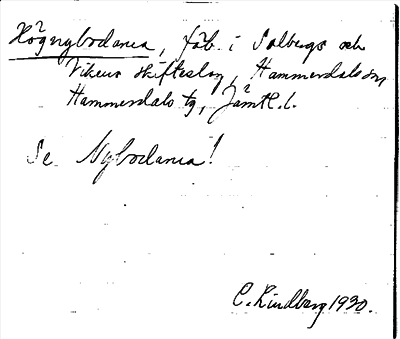 Högnybodarna, fäb. i Solbergs och
Vikens skifteslag, Hammerdals sn
Hammerdals tg, Jämtl. l.
Se Nybodarna!
C. Lindberg 1930.